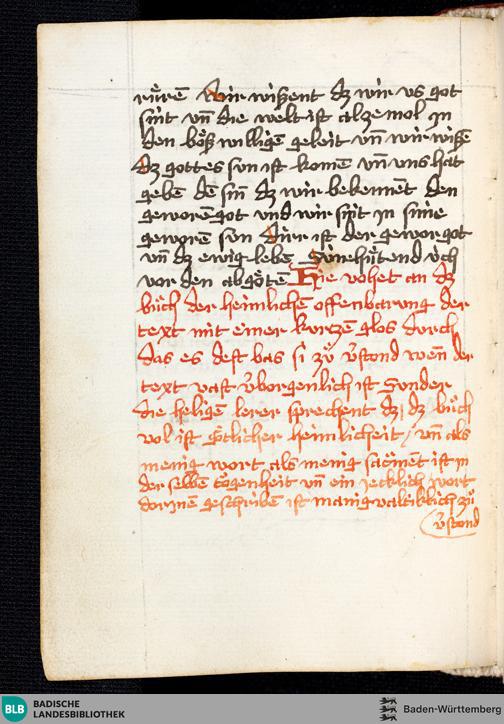 rúren Wir wißent dz wir vs got
sint vn̄ die welt ist alzemol jn
den böß willigē geleit vn̄ wir wißē
dz gottes sun ist komē vn̄ vns hat
gebē dē sin̄ dz wir bekennēt den
geworēgot vnd wir sint in sime
geworen sun dirr ist der gewor got
vn̄ dz ewig lebē Súnehútend úch
vor den abgötē Hie vohet an dz
bůch der heimlichē offenbarung der
text mit einer kurzē glos durch
das es dest bas si zů v̄stond wen̄ der
text vast v̄borgenlich ist Sunder
die heligē lerer sprechent dz dz bůch
vol ist götlicher heimlicheit / vn̄ als
menig wort als menig sacmēt ist in
der selbē tögenheit vn̄ ein jecklich wort
dorinē geschribē ist manigualtiklich zů
v̄stond
BLB
BADISCHE
LANDESBIBLIOTHEK
Baden-Württemberg